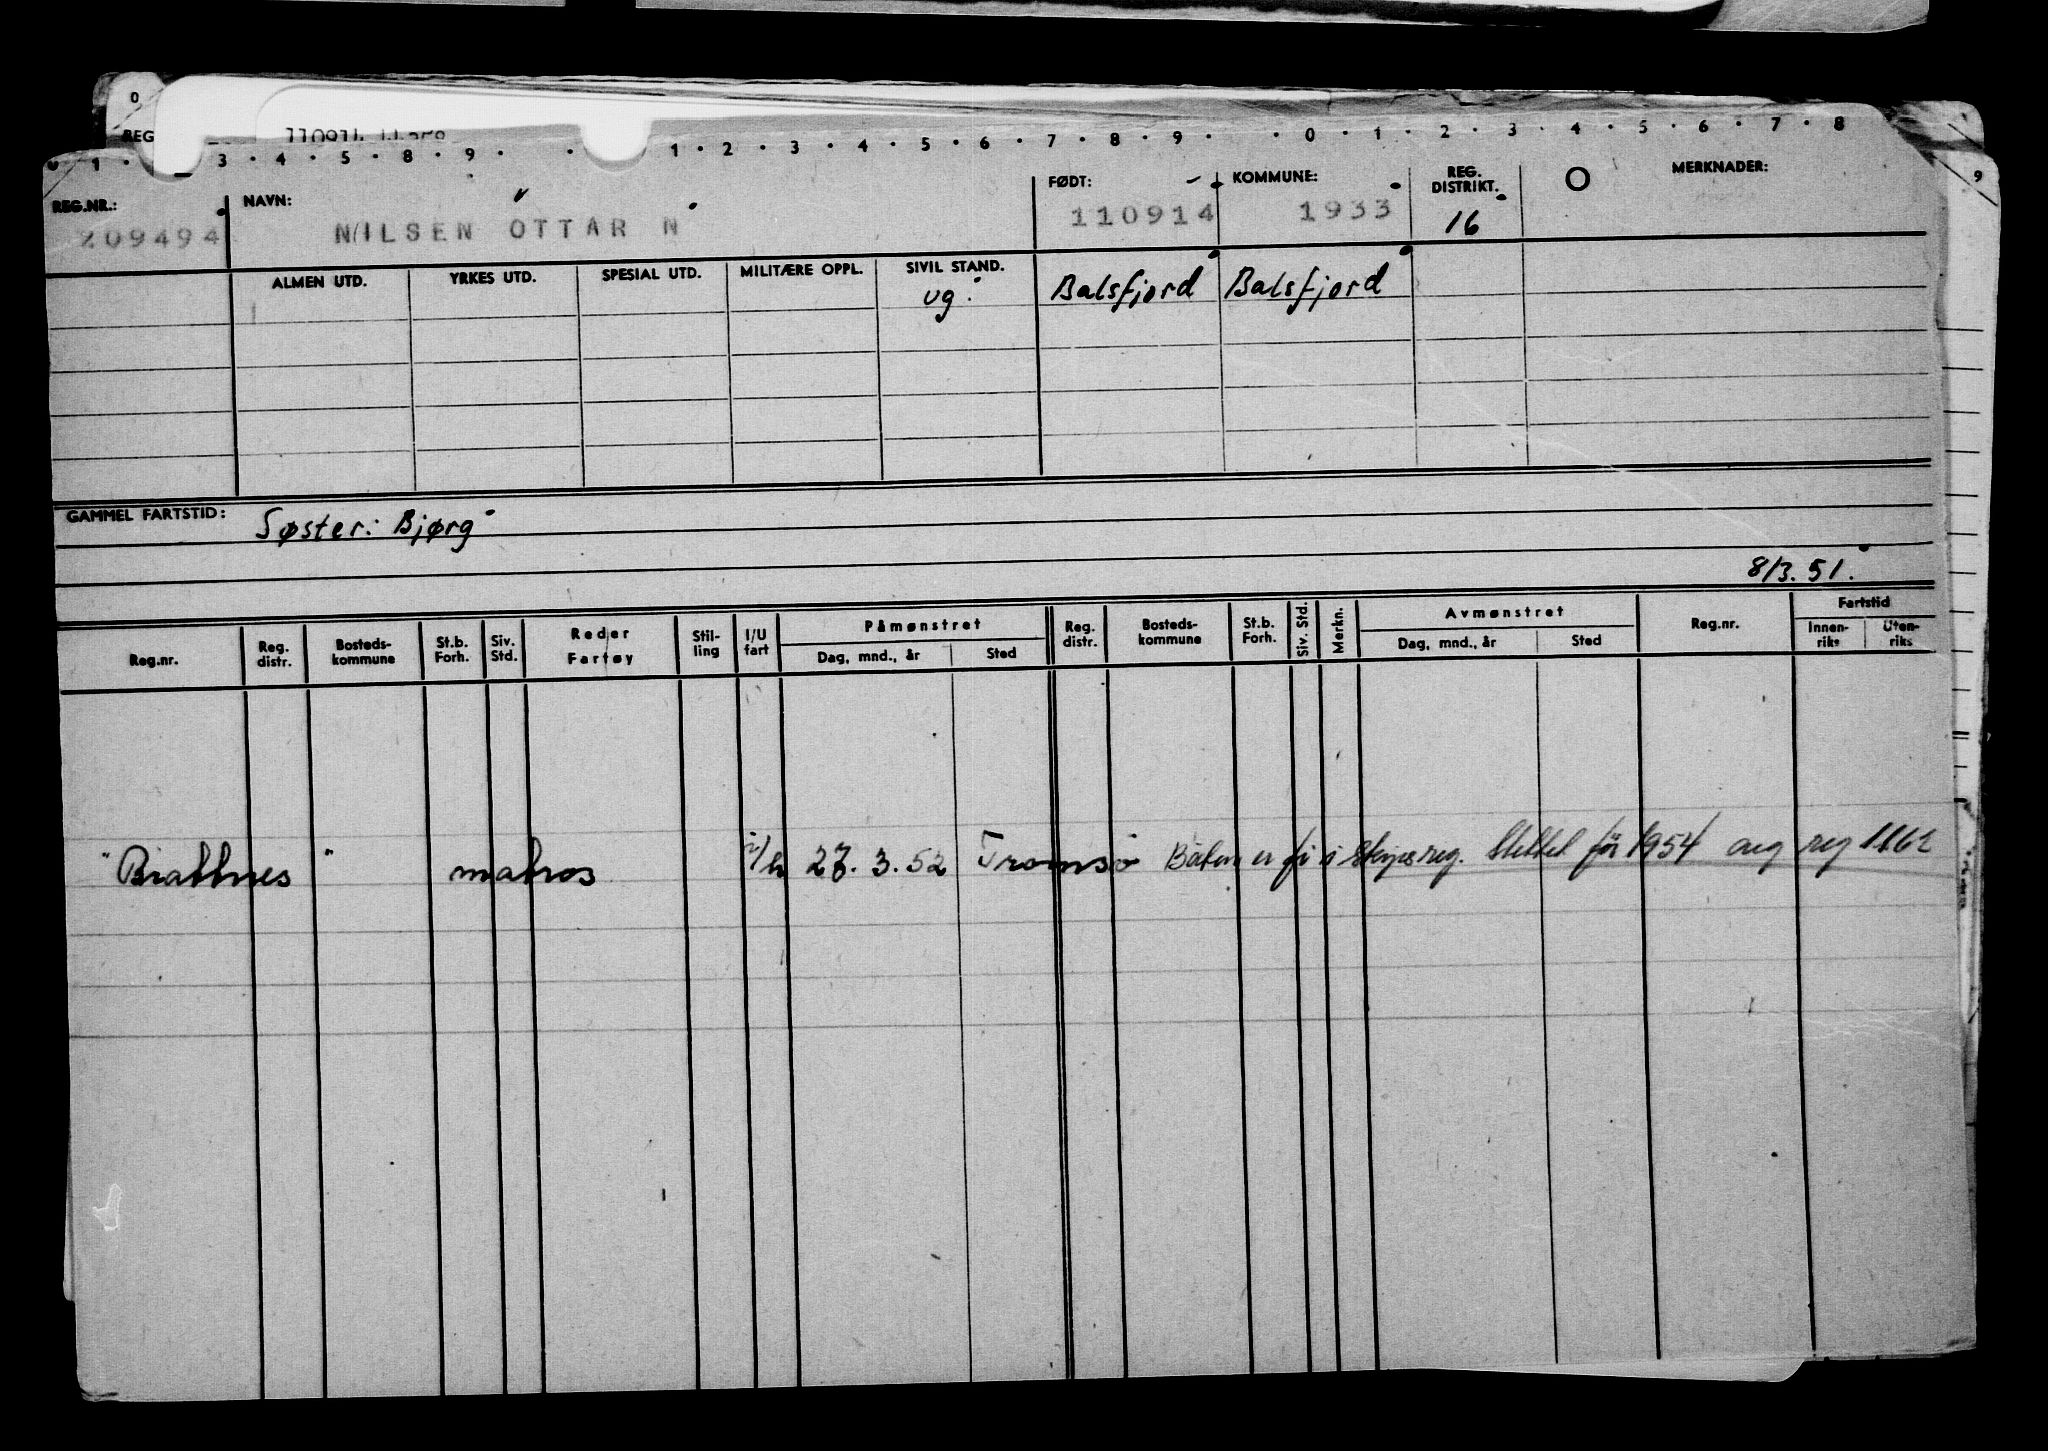 0
REG
110914
1 · 3 · 4 · 5 · 8 · 9 · · 1 · 2 · 3 · 4 · 5 · 6 · 7 · 8 · 9 · · 0 · 1 · 2 · 3 · 4 · 5 · 6 · 7 · 8
9
REG.NR.: NAVN: FØDT: KOMMUNE: REG. DISTRIKT. O MERKNADER:
209494 NILSEN OTTAR N 110914 1933 16
ALMEN UTD. YRKES UTD. SPESIAL UTD. MILITÆRE OPPL. SIVIL STAND.
ug. Balsfjord Balsfjord
GAMMEL FARTSTID: Søster: Bjørg
8/3. 51.
Reg.nr. Reg. distr. Bosteds-kommune St.b. Forh. Siv. Std. Reder Fartøy Stil-ling I/U fart Påmønstret Dag, mnd., år Sted Reg. distr. Bosteds-kommune St.b. Forh. Siv. Std. Merkn. Avmønstret Dag, mnd., år Sted Reg.nr. Fartstid Innen-riks Uten-riks
"Brattnes" matros 27. 3. 52 Tromsø Båten er i skipsreg. Slettet før 1954 reg 1162